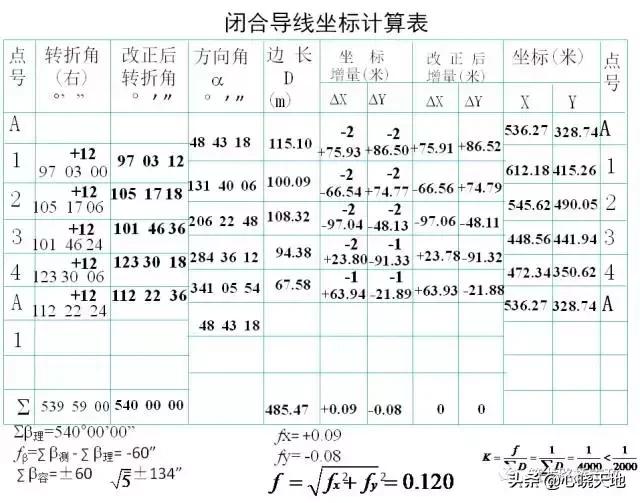 闭合导线坐标计算表
点号 转折角(右) ° ′ ″ 改正后转折角 ° ′ ″ 方向角 α ° ′ ″ 边长 D (m) 坐标增量(米) ΔX ΔY 改正后增量(米) ΔX ΔY 坐标(米) X Y 点号
A 536.27 328.74 A
48 43 18 115.10 -2 +75.93 -2 +86.50 +75.91 +86.52
1 +12 97 03 00 97 03 12 612.18 415.26 1
131 40 06 100.09 -2 -66.54 -2 +74.77 -66.56 +74.79
2 +12 105 17 06 105 17 18 545.62 490.05 2
206 22 48 108.32 -2 -97.04 -2 -48.13 -97.06 -48.11
3 +12 101 46 24 101 46 36 448.56 441.94 3
284 36 12 94.38 -2 +23.80 -1 -91.33 +23.78 -91.32
4 +12 123 30 06 123 30 18 472.34 350.62 4
341 05 54 67.58 -1 +63.94 -1 -21.89 +63.93 -21.88
A +12 112 22 24 112 22 36 536.27 328.74 A
48 43 18
1
Σ 539 59 00 540 00 00 485.47 +0.09 -0.08 0 0
Σβ理=540°00′00″
fβ=Σβ测-Σβ理= -60″
Σβ容=±60 √5 ±134″
fx= +0.09
fy= -0.08
f=√fx²+fy²=0.120
K = f/ΣD = 1/(ΣD/f) = 1/4000 < 1/2000
头条 @心晓天地